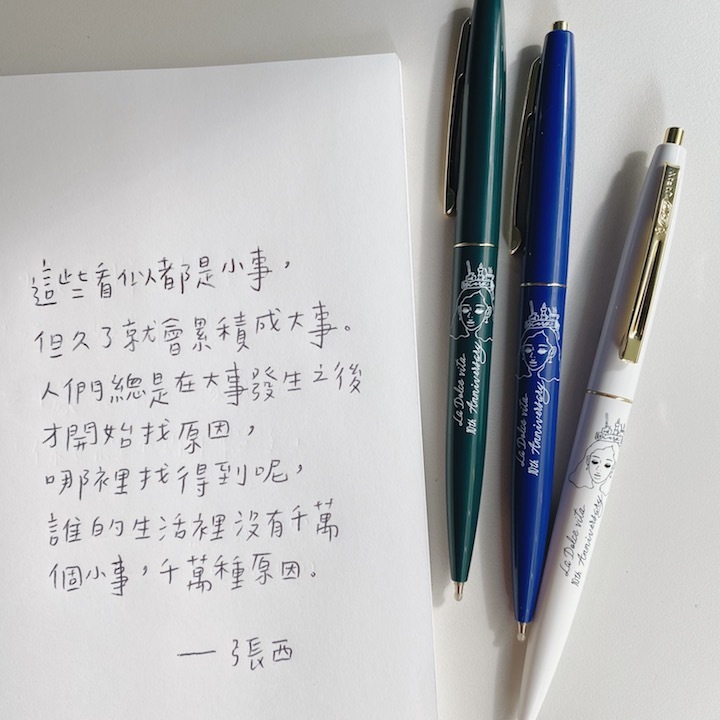 這些看似都是小事，
但久了就會累積成大事。
人們總是在大事發生之後
才開始找原因，
哪裡找得到呢，
誰的生活裡沒有千萬
個小事，千萬種原因。
— 張西
La Dolce vita
10th Anniversary
La Dolce vita
10th Anniversary
La Dolce vita
10th Anniversary